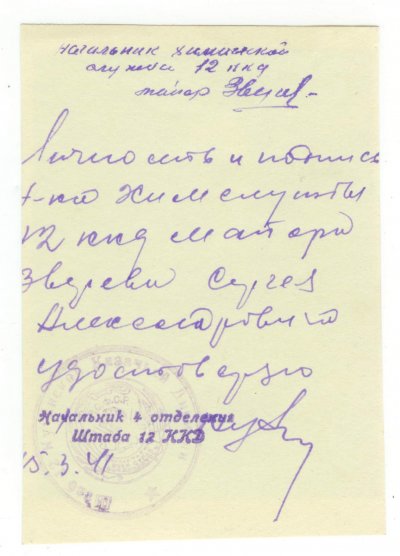 Начальник химической
службы 12 ккд
майор Зверев
Личность и подпись
н-ка Химслужбы
12 ккд майора
Зверева Сергея
Александровича
удостоверяю
Начальник 4 отделения
Штаба 12 ККД
15.3.41